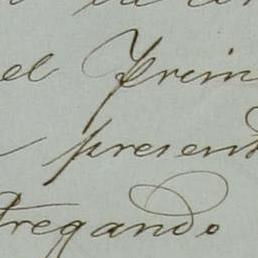 el Prim
present
tregando